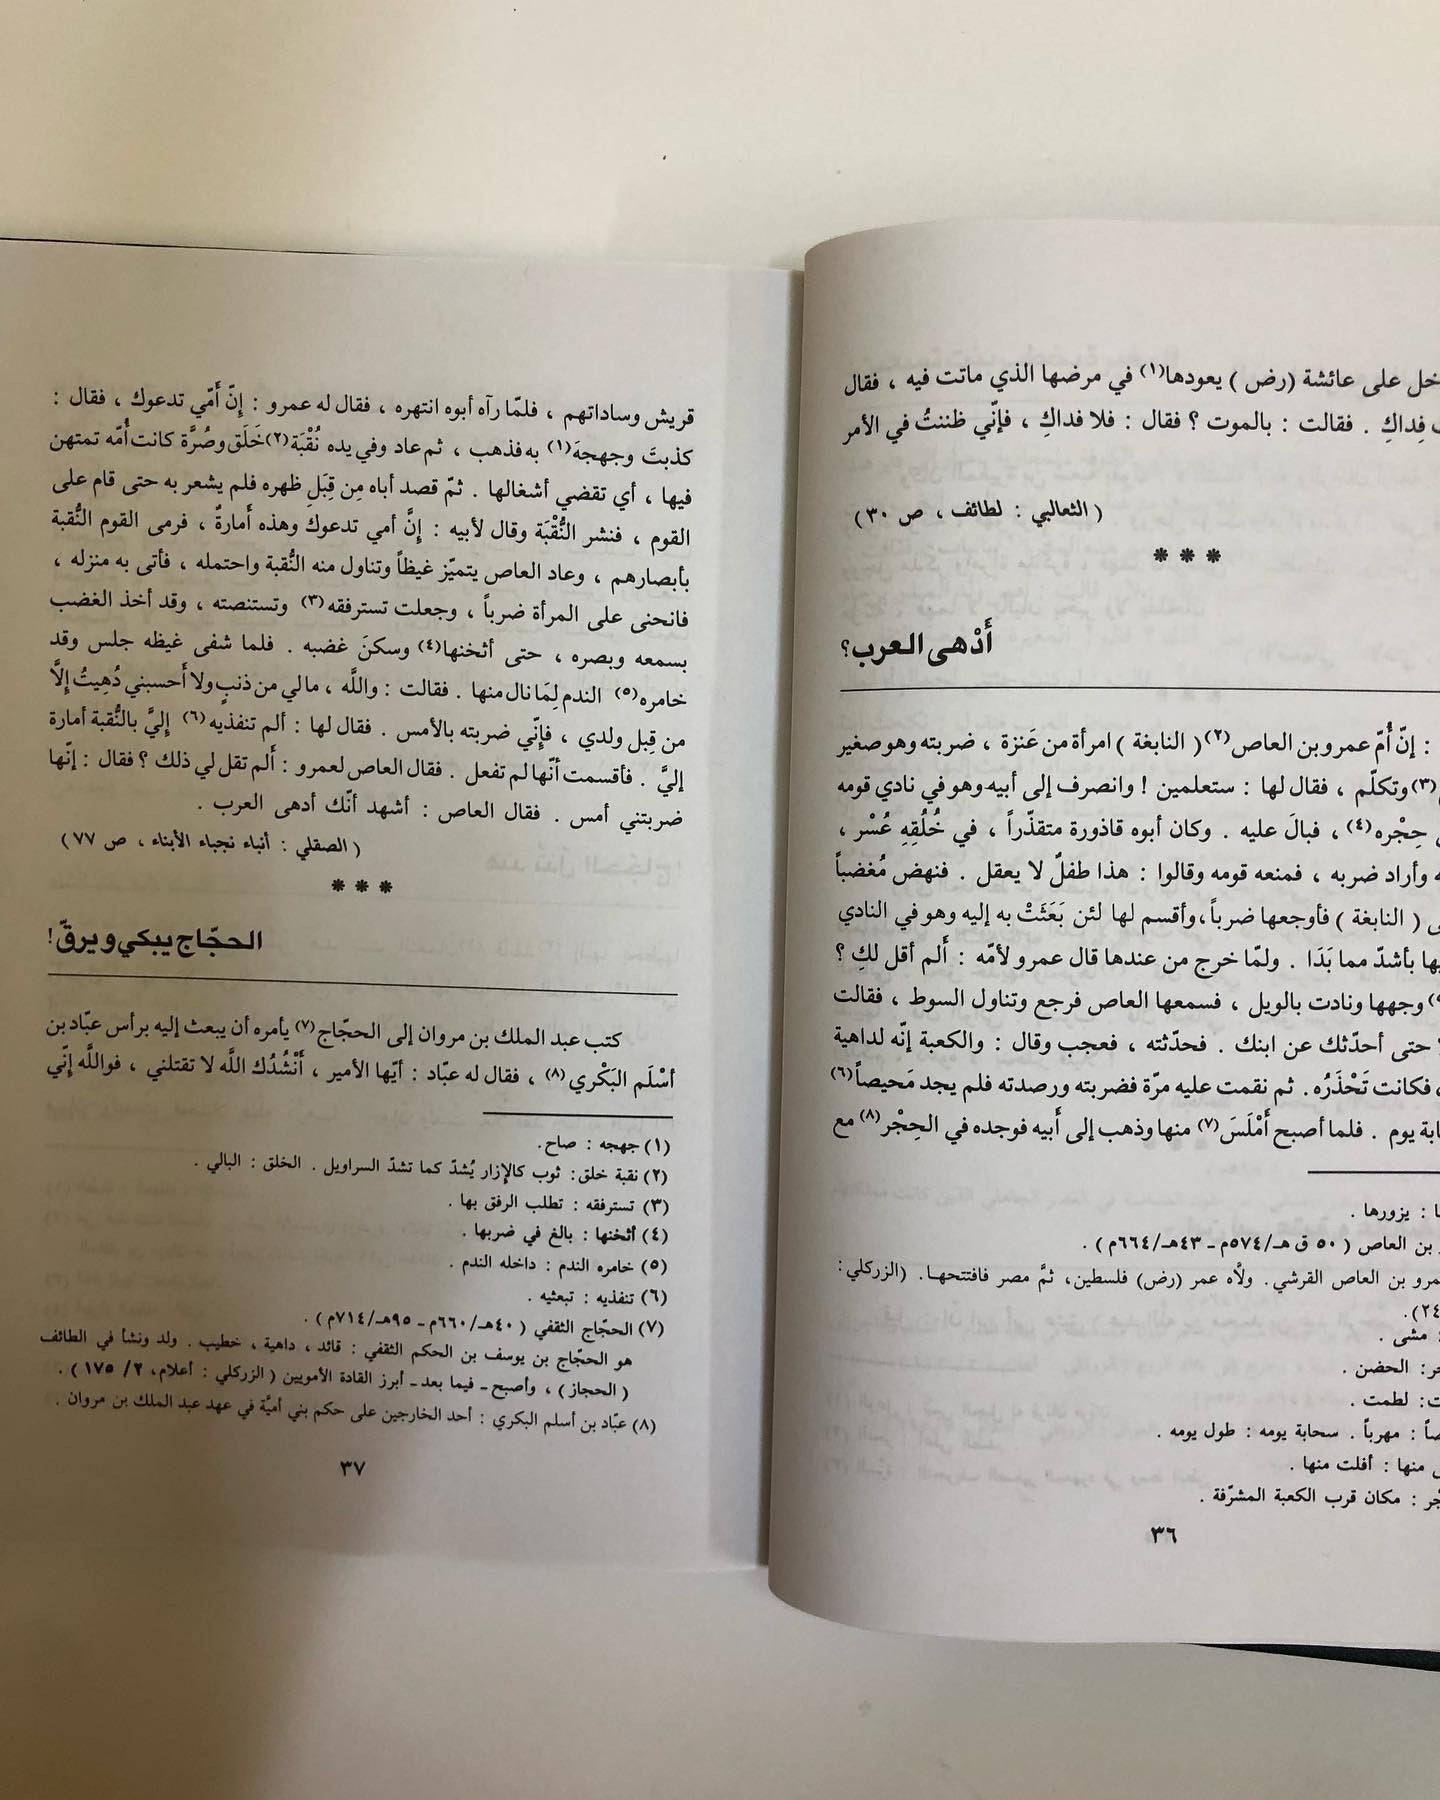 خل على عائشة (رض) يعودها(١) في مرضها الذي ماتت فيه ، فقال
فِداكِ . فقالت : بالموت ؟ فقال : فلا فداكِ ، فإنّي ظننتُ في الأمر
( الثعالبي : لطائف ، ص ٣٠ )
* * *
أَدْهى العرب؟
: إنّ أُمّ عمرو بن العاص(٢) ( النابغة ) امرأة من عَنزة ، ضربته وهو صغير
(٣) وتكلّم ، فقال لها : ستعلمين ! وانصرف إلى أبيه وهو في نادي قومه
حِجْره(٤) ، فبالَ عليه . وكان أبوه قاذورة متقذّراً ، في خُلُقِهِ عُسْر ،
وأراد ضربه ، فمنعه قومه وقالوا : هذا طفلٌ لا يعقل . فنهض مُغضباً
( النابغة ) فأوجعها ضرباً ، وأقسم لها لئن بَعَثَتْ به إليه وهو في النادي
بأشدّ مما بَدَا . ولمّا خرج من عندها قال عمرو لأمّه : أَلم أقل لكِ ؟
وجهها ونادت بالويل ، فسمعها العاص فرجع وتناول السوط ، فقالت
حتى أحدّثك عن ابنك . فحدّثته ، فعجب وقال : والكعبة إنّه لداهية
، فكانت تَحْذَرُه . ثم نقمت عليه مرّة فضربته ورصدته فلم يجد مَحيصاً(٦)
ابة يوم . فلما أصبح أَمْلَسَ(٧) منها وذهب إلى أَبيه فوجده في الحِجْر(٨) مع
ا : يزورها .
بن العاص ( ٥٠ ق هـ/٥٧٤م ـ ٤٣هـ/٦٦٤م ) .
مرو بن العاص القرشي . ولّاه عمر (رض) فلسطين، ثمَّ مصر فافتتحهـا. (الزركلي :
٢٤).
مشى .
جر: الحضن .
ت: لطمت .
صاً : مهرباً . سحابة يومه : طول يومه .
منها : أفلت منها .
جر : مكان قرب الكعبة المشرّفة .
٣٦
قريش وساداتهم ، فلمّا رآه أبوه انتهره ، فقال له عمرو : إنّ أمّي تدعوك ، فقال :
كذبتَ وجهجهَ(١) به فذهب ، ثم عاد وفي يده نُقْبَة(٢) خَلَق وصُرَّة كانت أُمّه تمتهن
فيها ، أي تقضي أشغالها . ثمّ قصد أباه مِن قِبَلِ ظهره فلم يشعر به حتى قام على
القوم ، فنشر النُّقْبَة وقال لأبيه : إنَّ أمي تدعوك وهذه أَمارةٌ ، فرمى القوم النُّقبة
بأبصارهم ، وعاد العاص يتميّز غيظاً وتناول منه النُّقبة واحتمله ، فأتى به منزله ،
فانحنى على المرأة ضرباً ، وجعلت تسترفقه(٣) وتستنصته ، وقد أخذ الغضب
بسمعه وبصره ، حتى أثخنها(٤) وسكنَ غضبه . فلما شفى غيظه جلس وقد
خامره(٥) الندم لِمَا نال منها . فقالت : واللَّه ، مالي من ذنبٍ ولا أَحسبني دُهِيتُ إلَّا
من قِبل ولدي ، فإنّي ضربته بالأمس . فقال لها : ألم تنفذيه(٦) إليَّ بالنُّقبة أمارة
إليَّ . فأقسمت أنّها لم تفعل . فقال العاص لعمرو : أَلم تقل لي ذلك ؟ فقال : إنّها
ضربتني أمس . فقال العاص : أشهد أنّك أدهى العرب .
( الصقلي : أنباء نجباء الأبناء ، ص ٧٧ )
* * *
الحجّاج يبكي ويرقّ!
كتب عبد الملك بن مروان إلى الحجّاج(٧) يأمره أن يبعث إليه برأس عبّاد بن
أسْلَم البَكْري(٨) ، فقال له عبّاد : أيّها الأمير ، أَنْشُدُك اللَّه لا تقتلني ، فواللَّه إنّي
(١) جهجه : صاح.
(٢) نقبة خلق: ثوب كالإزار يُشدّ كما تشدّ السراويل . الخلق : البالي .
(٣) تسترفقه : تطلب الرفق بها .
(٤) أثخنها : بالغ في ضربها .
(٥) خامره الندم : داخله الندم .
(٦) تنفذيه : تبعثيه .
(٧) الحجّاج الثقفي ( ٤٠هـ/٦٦٠م ـ ٩٥هـ/٧١٤م ) .
هو الحجّاج بن يوسف بن الحكم الثقفي : قائد ، داهية ، خطيب . ولد ونشأ في الطائف
( الحجاز ) ، وأصبح ـ فيما بعد ـ أبرز القادة الأمويين ( الزركلي : أعلام، ٢/ ١٧٥ ) .
(٨) عبّاد بن أسلم البكري : أحد الخارجين على حكم بني أميَّة في عهد عبد الملك بن مروان .
٣٧